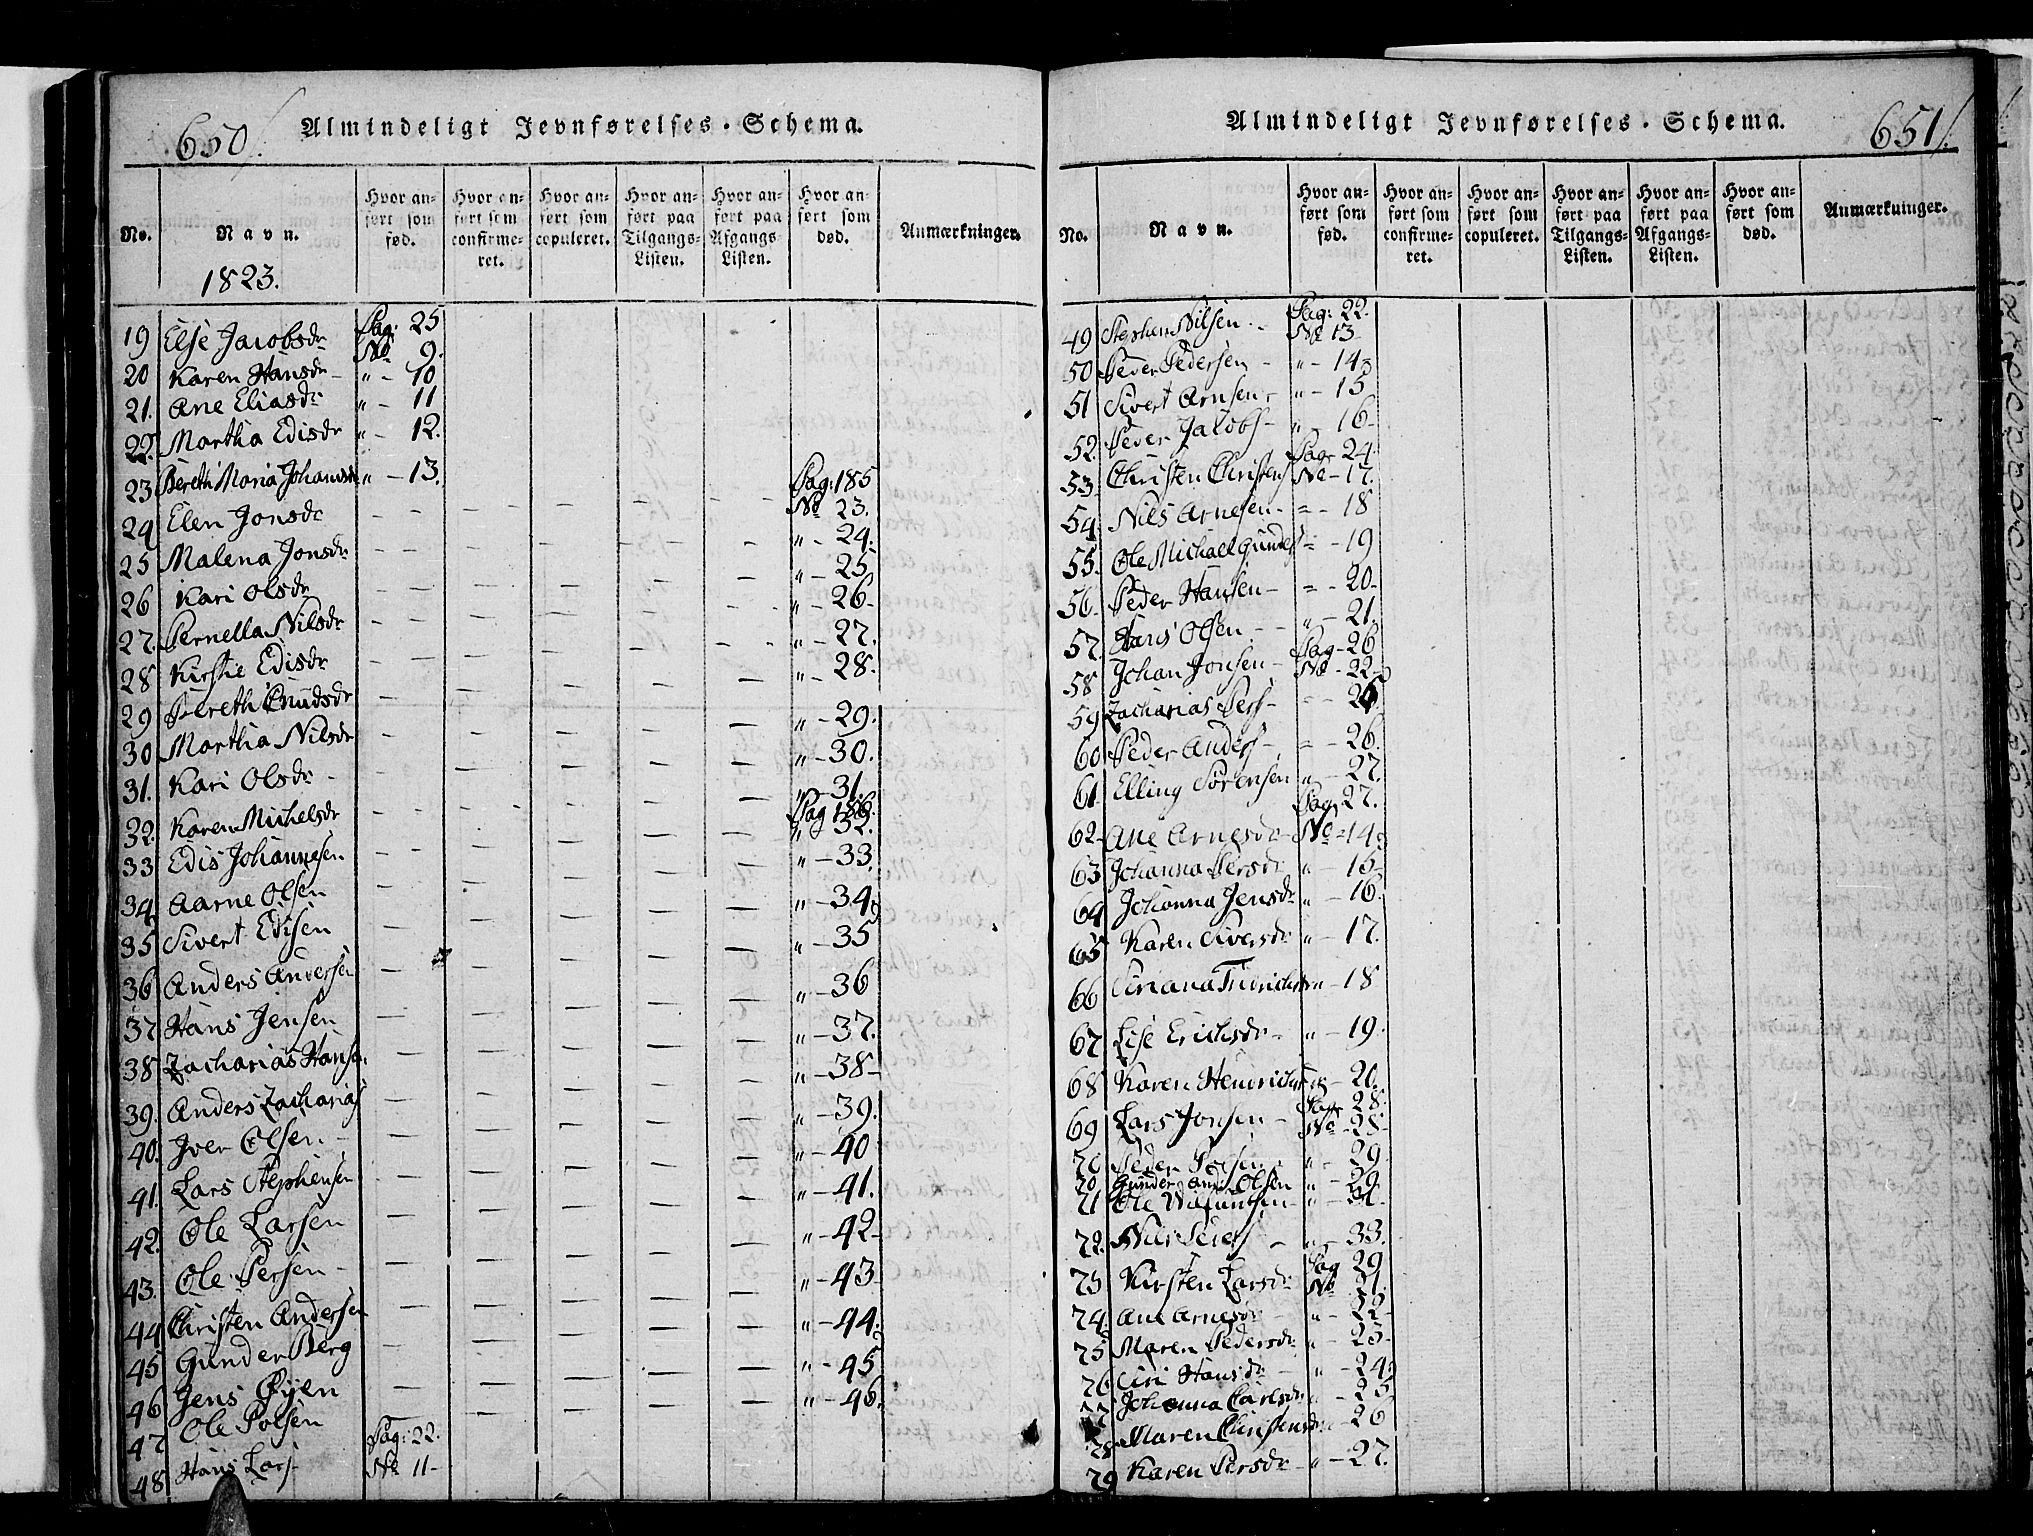 650/.
Almindeligt Jevnførelses-Schema.
No.
Navn.
Hvor anført som fød.
Hvor anført som confirmeret.
Hvor anført som copuleret.
Hvor anført paa Tilgangs-Listen.
Hvor anført paa Afgangs-Listen.
Hvor anført som død.
Anmærkninger.
1823.
Pag: 25
19 Else Jacobsdr No 9.
20 Karen Hansdr — „ - 10
21. Ane Eliasdr „ - 11
22. Martha Edisdr „ - 12.
23 Bereth Maria Johansdr „ - 13. Pag: 185
24 Elen Jonsdr — — — — — — No 23.
25 Malena Jonsdr — — — — - „ - 24.
26 Kari Olsdr — — — — — „ - 25
27. Pernella Nilsdr — — — — - „ - 26-
28 Kirstie Edisdr — — — — - - „ - 27.
29 Bereth Cnudsdr — — — — — „ - 28.
30 Martha Nilsdr — — — — — „ - 29.
31. Kari Olsdr - — — — — — „ - 30.
32. Karen Michelsdr — — — — — „ - 31.
Pag 186.
33 Edis Johannesen — — — — — „ 32.
34 Aarne Olsen — — — — — „ - 33.
35 Sivert Edisen — — — — — „ - 34
36 Anders Andersen — — — — „ - 35
37. Hans Jensen — — — — — „ - 36
38 Zacharias Hansen — — — — — „ - 37.
39. Anders Zacharias — — — — — „ - 38-
40. Iver Olsen — — — — — — „ - 39.
41. Lars Stephensen — — — — — „ - 40
42. Ole Larsen — — — — — „ - 41.
43. Ole Persen — — — — — „ - 42-
44 Christen Andersen — — — — — „ - 43
45 Gunder Berg — — — — — „ - 44.
46 Jens Øyen — — — — — „ - 45
47 Ole Polsen — — — „ - 46.
Pag: 22.
48 Hans Lars- No 11-
Almindeligt Jevnførelses-Schema.
651/.
No.
Navn.
Hvor anført som fød.
Hvor anført som confirmeret.
Hvor anført som copuleret.
Hvor anført paa Tilgangs-Listen.
Hvor anført paa Afgangs-Listen.
Hvor anført som død.
Anmærkninger.
Pag: 22.
49 Stephen Nilsen - No 13-
50 Peder Pedersen - „ - 14
51 Sivert Arnsen - „ - 15
52. Peder Jakobs- „ - 16-
Pag 24.
53. Christen Christens No - 17.
54. Nils Arnesen - = - 18
55. Ole Michael Gunders = - 19
56. Peder Hansen - = - 20-
57. Hans Olsen - - „ - 21.
Pag- 26
58 Johan Jonsen - No - 22-
59 Zacharias Pers- = -
60 Peder Anders- = - 26.
61. Elling Sørensen „ - 27.
Pag 27.
62- Ane Arnesdr - No - 14
63 Johanna Persdr „ - 15-
64 Johanna Jensdr „ - 16.
65 Karen Siversdr „ - 17.
66 „ - 18
67 Lise Erichsdr - „ - 19.
68 Karen „ - 20.
Pag 28.
69 Lars Jonsen - No - 28-
70 Peder „ - 29.
70 Gunder Olsen „ -
71 Ole „ - 31.
72. Nils - „ - 33.
Pag 29
73 Kirsten Larsdr No 21.
74. Ane Arnesdr „ - 22-
75 Maren Pedersdr „ - 23-
76 Siri Hansdr - „ - 24
77 Johanna Carlsdr - 25
78 Maren Christensdr - 26
79 Karen Persdr - „ - 27.